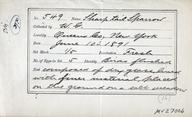 No. 549 Name Sharp tail Sparrow
Collected by W. G.
Locality Queens Co, New York
Date June 10, 1891
Set Mark 18 Incubation Fresh
No. of Eggs in Set 5 Identity Bird flushed
composed of dry grasses lined
with finer material, placed
on the ground on a salt meadow